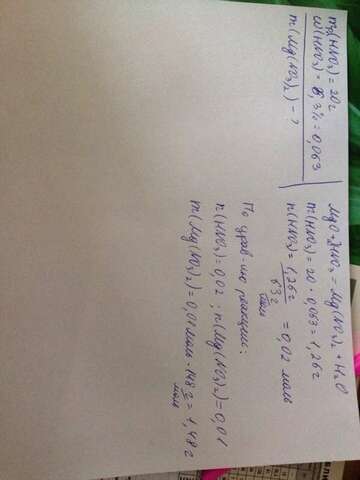 mр(HNO₃) = 20г
ω(HNO₃) = 6,3% = 0,063
m(Mg(NO₃)₂) - ?
MgO + 2HNO₃ = Mg(NO₃)₂ + H₂O
m(HNO₃) = 20 · 0,063 = 1,26г
n(HNO₃) = 1,26г / 63 г/моль = 0,02 моль
По урав-ию реакции:
n(HNO₃) = 0,02 ; n(Mg(NO₃)₂) = 0,01
m(Mg(NO₃)₂) = 0,01 моль · 148 г/моль = 1,48г